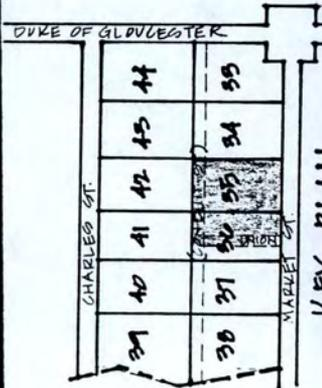 DUKE OF GLOUCESTER
CHARLES ST.
44
43
42
41
40
39
33
34
35
36
37
38
MARKET ST.
KEY